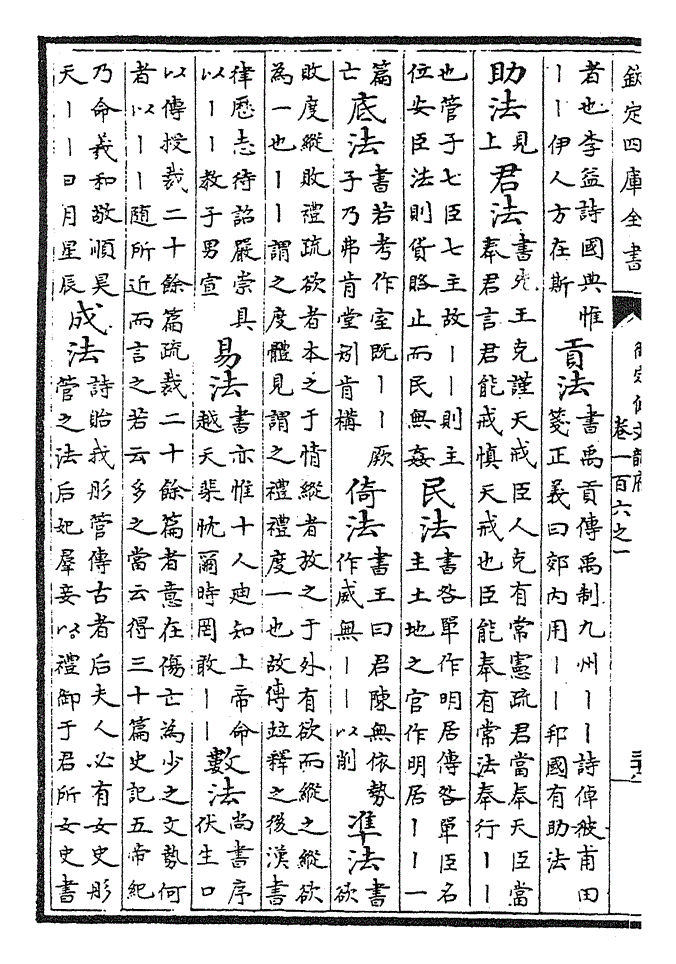 欽定四庫全書
御定佩文韻府
卷一百六之一
者也李益詩國典惟
丨丨伊人方在斯
貢法
書禹貢傳禹制九州丨丨詩倬彼甫田
箋正義曰郊內用丨丨邦國有助法
助法
見
上
君法
書先王克謹天戒臣人克有常憲疏君當奉天臣當
奉君言君能戒慎天戒也臣能奉有常法奉行丨丨
也管子七臣七主故丨丨則主
位安臣法則貨賂止而民無姦
民法
書咎單作明居傳咎單臣名
主土地之官作明居丨丨一
篇
亡
底法
書若考作室既丨丨厥
子乃弗肯堂矧肯構
倚法
書王曰君陳無依勢
作威無丨丨以削
準法
書
欲
敗度縱敗禮疏欲者本之于情縱者放之于外有欲而縱之縱欲
為一也丨丨謂之度體見謂之禮禮度一也故傳竝釋之後漢書
律歷志待詔嚴崇具
以丨丨教子男宣
易法
書亦惟十人迪知上帝命
越天棐忱爾時罔敢丨丨
數法
尚書序
伏生口
以傳授裁二十餘篇疏裁二十餘篇者意在傷亡為少之文勢何
者以丨丨隨所近而言之若云多之當云得三十篇史記五帝紀
乃命羲和敬順昊
天丨丨日月星辰
成法
詩貽我彤管傳古者后夫人必有女史彤
管之法后妃羣妾以禮御于君所女史書